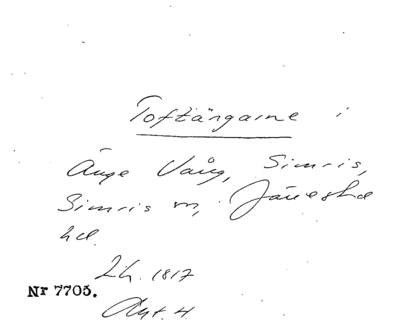 Toftängarne i
Änge Vång, Simris,
Simris sn, Järrestad
hd.
Lh. 1817
Nr 7705.
Akt. 4